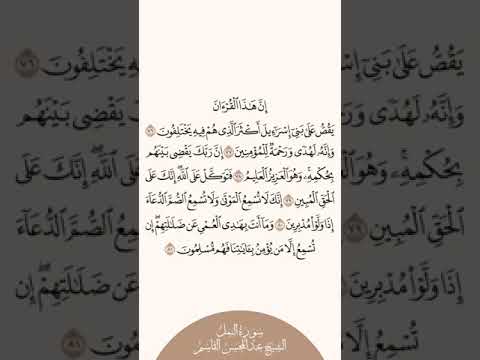 إِنَّ هَٰذَا ٱلْقُرْءَانَ
يَقُصُّ عَلَىٰ بَنِىٓ إِسْرَٰٓءِيلَ أَكْثَرَ ٱلَّذِى هُمْ فِيهِ يَخْتَلِفُونَ ٧٦
وَإِنَّهُۥ لَهُدًى وَرَحْمَةٌ لِّلْمُؤْمِنِينَ ٧٧ إِنَّ رَبَّكَ يَقْضِى بَيْنَهُم
بِحُكْمِهِۦ وَهُوَ ٱلْعَزِيزُ ٱلْعَلِيمُ ٧٨ فَتَوَكَّلْ عَلَى ٱللَّهِ إِنَّكَ عَلَى
ٱلْحَقِّ ٱلْمُبِينِ ٧٩ إِنَّكَ لَا تُسْمِعُ ٱلْمَوْتَىٰ وَلَا تُسْمِعُ ٱلصُّمَّ ٱلدُّعَآءَ
إِذَا وَلَّوْا۟ مُدْبِرِينَ ٨٠ وَمَآ أَنتَ بِهَٰدِى ٱلْعُمْىِ عَن ضَلَٰلَتِهِمْ إِن
تُسْمِعُ إِلَّا مَن يُؤْمِنُ بِـَٔايَٰتِنَا فَهُم مُّسْلِمُونَ ٨١
سورة النمل
الشيخ عبدالمحسن القاسم